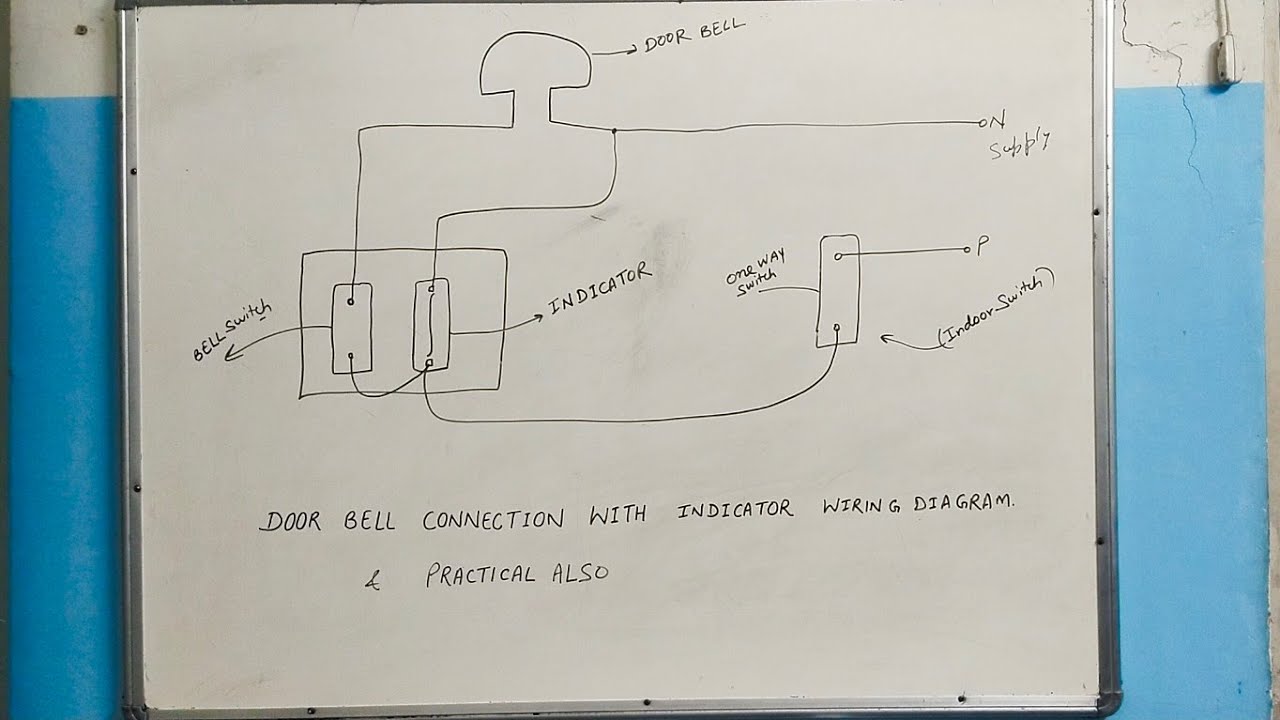 DOOR BELL
N
Supply
P
one WAY
Switch
(Indoor Switch)
INDICATOR
BELL Switch
DOOR BELL CONNECTION WITH INDICATOR WIRING DIAGRAM.
& PRACTICAL ALSO